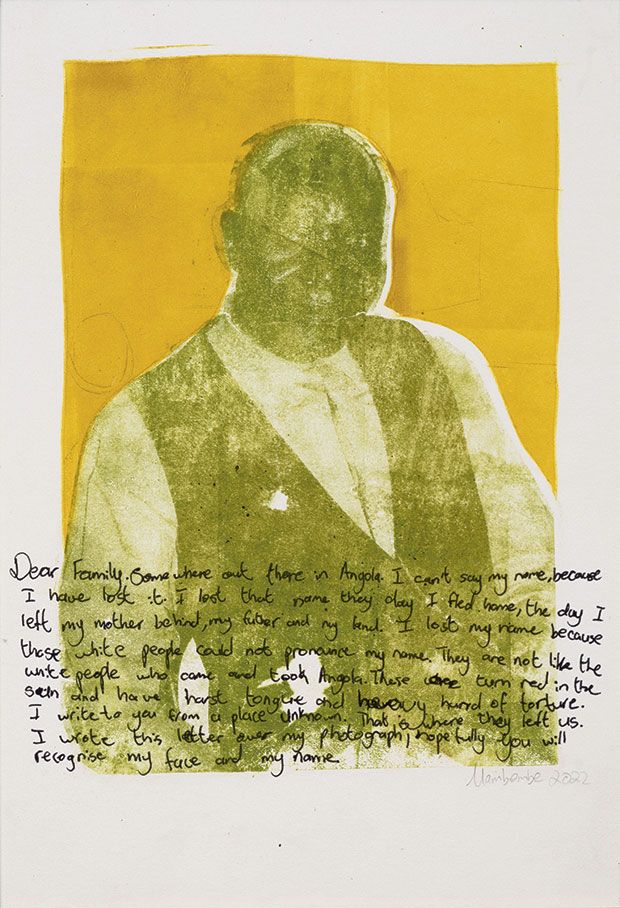 Dear Family. Somewhere out there in Angola. I can't say my name, because
I have lost it. I lost that name they day I fled home, the day I
left my mother behind, my father and my land. I lost my name because
those white people could not pronounce my name. They are not like the
white people who came and took Angola. These were turn red in the
sun and have harst tongure and heavy hurrd of torture.
I write to you from a place unknown. That is where they left us.
I wrote this letter over my photograph, hopefully you will
recognise my face and my name
Mambembe 2022